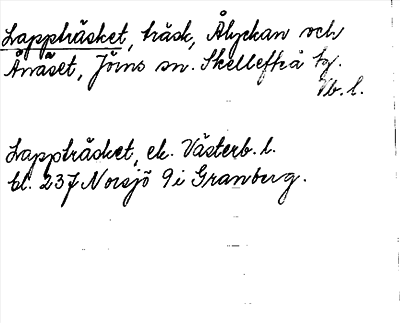 Lappträsket, träsk, Ålyckan och
Ånäset, Jörns sn. Skellefteå tg.
Vb. l.
Lappträsket, ek. Västerb. l.
bl. 237 Norsjö 9i Granberg.